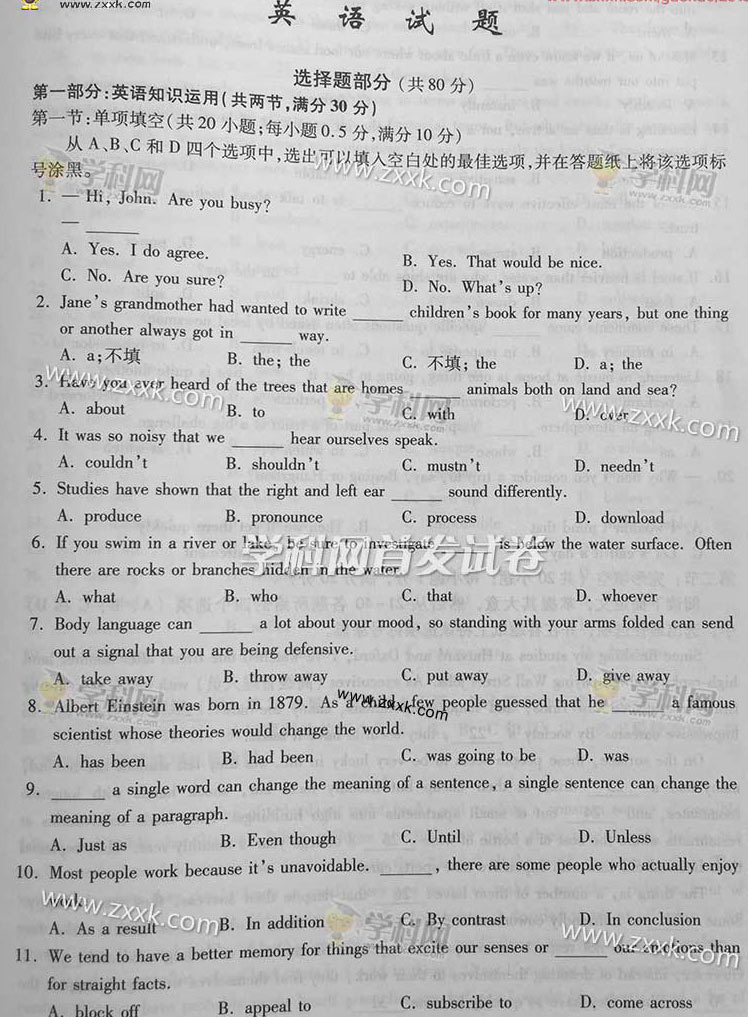 www.zxxk.com
英 语 试 题
选择题部分 (共80分)
第一部分:英语知识运用(共两节,满分30分)
第一节:单项填空(共20小题;每小题0.5分,满分10分)
从A、B、C和D四个选项中,选出可以填入空白处的最佳选项,并在答题纸上将该选项标
号涂黑。
学科网
www.zxxk.com
1. — Hi, John. Are you busy?
— ______
A. Yes. I do agree.
B. Yes. That would be nice.
C. No. Are you sure?
D. No. What's up?
2. Jane's grandmother had wanted to write ______ children's book for many years, but one thing
or another always got in ______ way.
A. a;不填 B. the; the C. 不填; the D. a; the
www.zxxk.com
学科网
www.zxxk.com
3. Have you ever heard of the trees that are homes ______ animals both on land and sea?
A. about B. to C. with D. over
4. It was so noisy that we ______ hear ourselves speak.
A. couldn't B. shouldn't C. mustn't D. needn't
5. Studies have shown that the right and left ear ______ sound differently.
A. produce B. pronounce C. process D. download
学科网首发试卷
6. If you swim in a river or lake, be sure to investigate ______ is below the water surface. Often
there are rocks or branches hidden in the water.
A. what B. who C. that D. whoever
7. Body language can ______ a lot about your mood, so standing with your arms folded can send
out a signal that you are being defensive.
A. take away B. throw away C. put away D. give away
学科网
www.zxxk.com
学科网
8. Albert Einstein was born in 1879. As a child, few people guessed that he ______ a famous
scientist whose theories would change the world.
A. has been B. had been C. was going to be D. was
9. ______ a single word can change the meaning of a sentence, a single sentence can change the
meaning of a paragraph.
A. Just as B. Even though C. Until D. Unless
10. Most people work because it's unavoidable. ______, there are some people who actually enjoy
work.
A. As a result B. In addition C. By contrast D. In conclusion
www.zxxk.com
学科网
www.zxxk.com
11. We tend to have a better memory for things that excite our senses or ______ our emotions than
for straight facts.
A. block off B. appeal to C. subscribe to D. come across